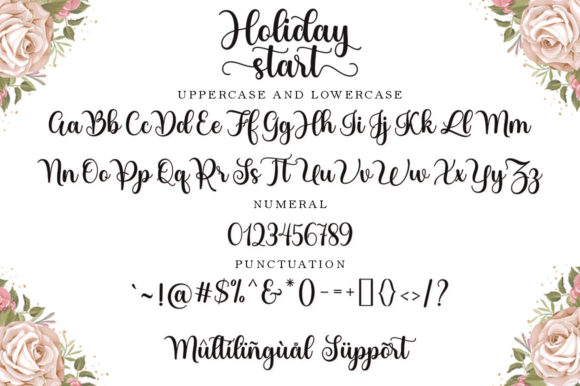 Holiday
start
UPPERCASE AND LOWERCASE
Aa Bb Cc Dd Ee Ff Gg Hh Ii Jj Kk Ll Mm
Nn Oo Pp Qq Rr Ss Tt Uu Vv Ww Xx Yy Zz
NUMERAL
0123456789
PUNCTUATION
`~!@#$%^&*()-=+[]{}<>/?
Mûltilìñgùàl Süppõrt